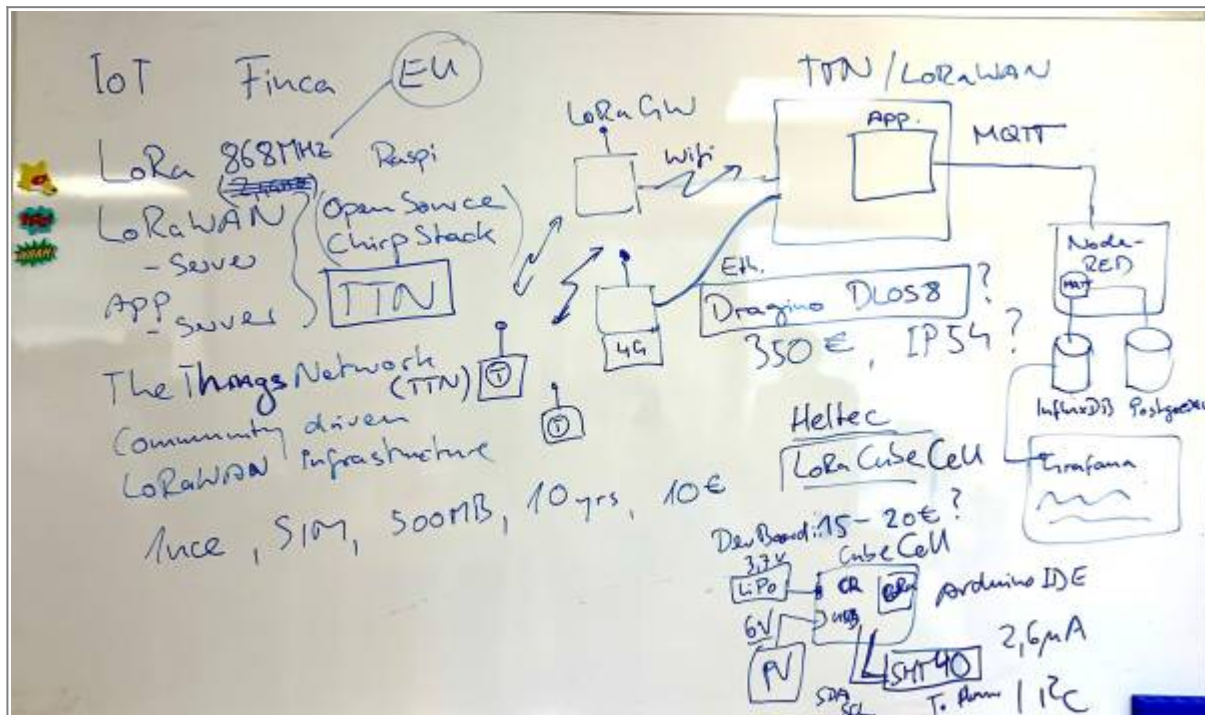 IoT Finca EU
LoRa 868MHz Raspi
LoRaWAN
- Server
App
- Server
(Open Source
ChirpStack)
TTN
The Things Network
(TTN)
Community driven
LoRaWAN Infrastructure
1nce, SIM, 500MB, 10yrs, 10€
T
T
LoRa GW
Wifi
4G
Eth.
TTN/LoRaWAN
App.
MQTT
Dragino DLOS8 ?
350€, IP54?
Node-
RED
InfluxDB
Grafana
Heltec
LoRa CubeCell
Dev Board: 15-20€?
CubeCell
3,7V
LiPo
6V
PV
USB
Arduino IDE
SHT40
2,6µA
SDA
SCL
I²C